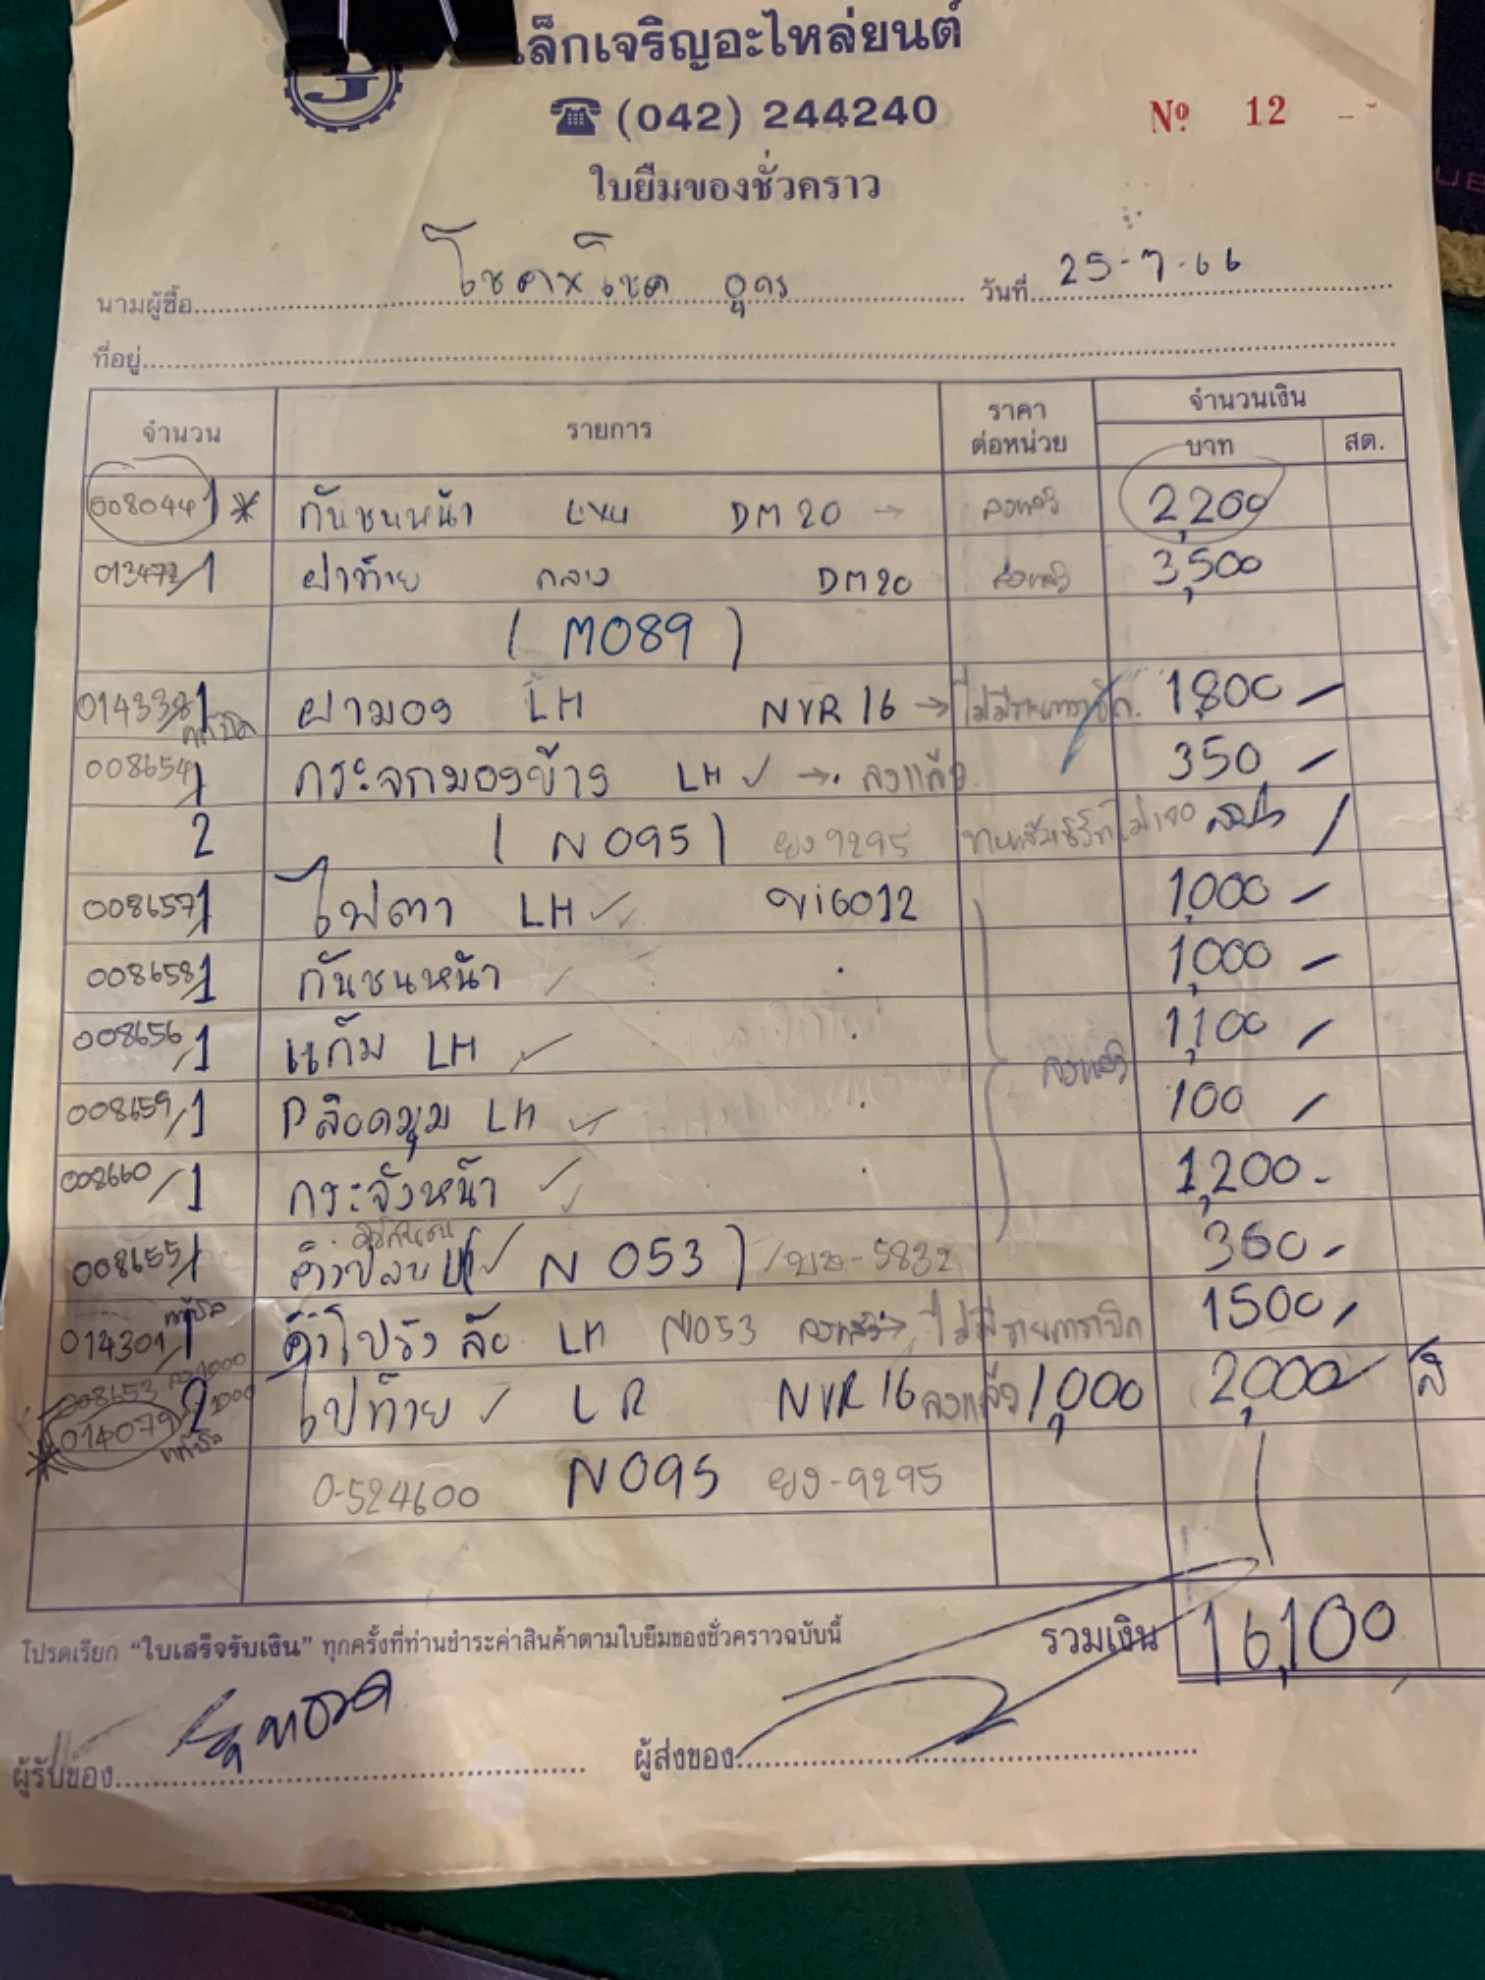 เล็กเจริญอะไหล่ยนต์
☎ (042) 244240
Nº 12
ใบยืมของชั่วคราว
นามผู้ซื้อ โชคมีโชค อุดร วันที่ 25-7-66
ที่อยู่
จำนวน รายการ ราคาต่อหน่วย จำนวนเงิน
บาท สต.
008044 1 * กันชนหน้า DM20 → ลงแล้ว 2,200
013472/1 ฝาท้าย กลาง DM20 ลงแล้ว 3,500
(M089)
014338/1 ฝามอง LH NVR16 → ไม่มีรายการเปิด 1,800 -
008654/1 กระจกมองข้าง LH ✓ → ลงแล้ว 350 -
2 (N095) ยง 9295
008657/1 ไฟตา LH ✓ VIGO12 1,000 -
008658/1 กันชนหน้า ✓ 1,000 -
008656/1 แก้ม LH ✓ ลงแล้ว 1,100 -
008659/1 P ล๊อคมุม LH ✓ 100 -
008660/1 กระจังหน้า ✓ 1,200 -
008655/1 N 053) 5832 350 -
014301/1 คิ้วโป่งล้อ LH N053 ลงแล้ว → ไม่มีรายการเปิด 1500 -
008653 ลง 1000
014079 1000
2 ไฟท้าย ✓ L R NVR16 ลงแล้ว 1,000 2,000
0-524600 N095 ยง-9295
โปรดเรียก “ใบเสร็จรับเงิน” ทุกครั้งที่ท่านชำระค่าสินค้าตามใบยืมของชั่วคราวฉบับนี้ รวมเงิน 16,100
ผู้รับของ ผู้ส่งของ